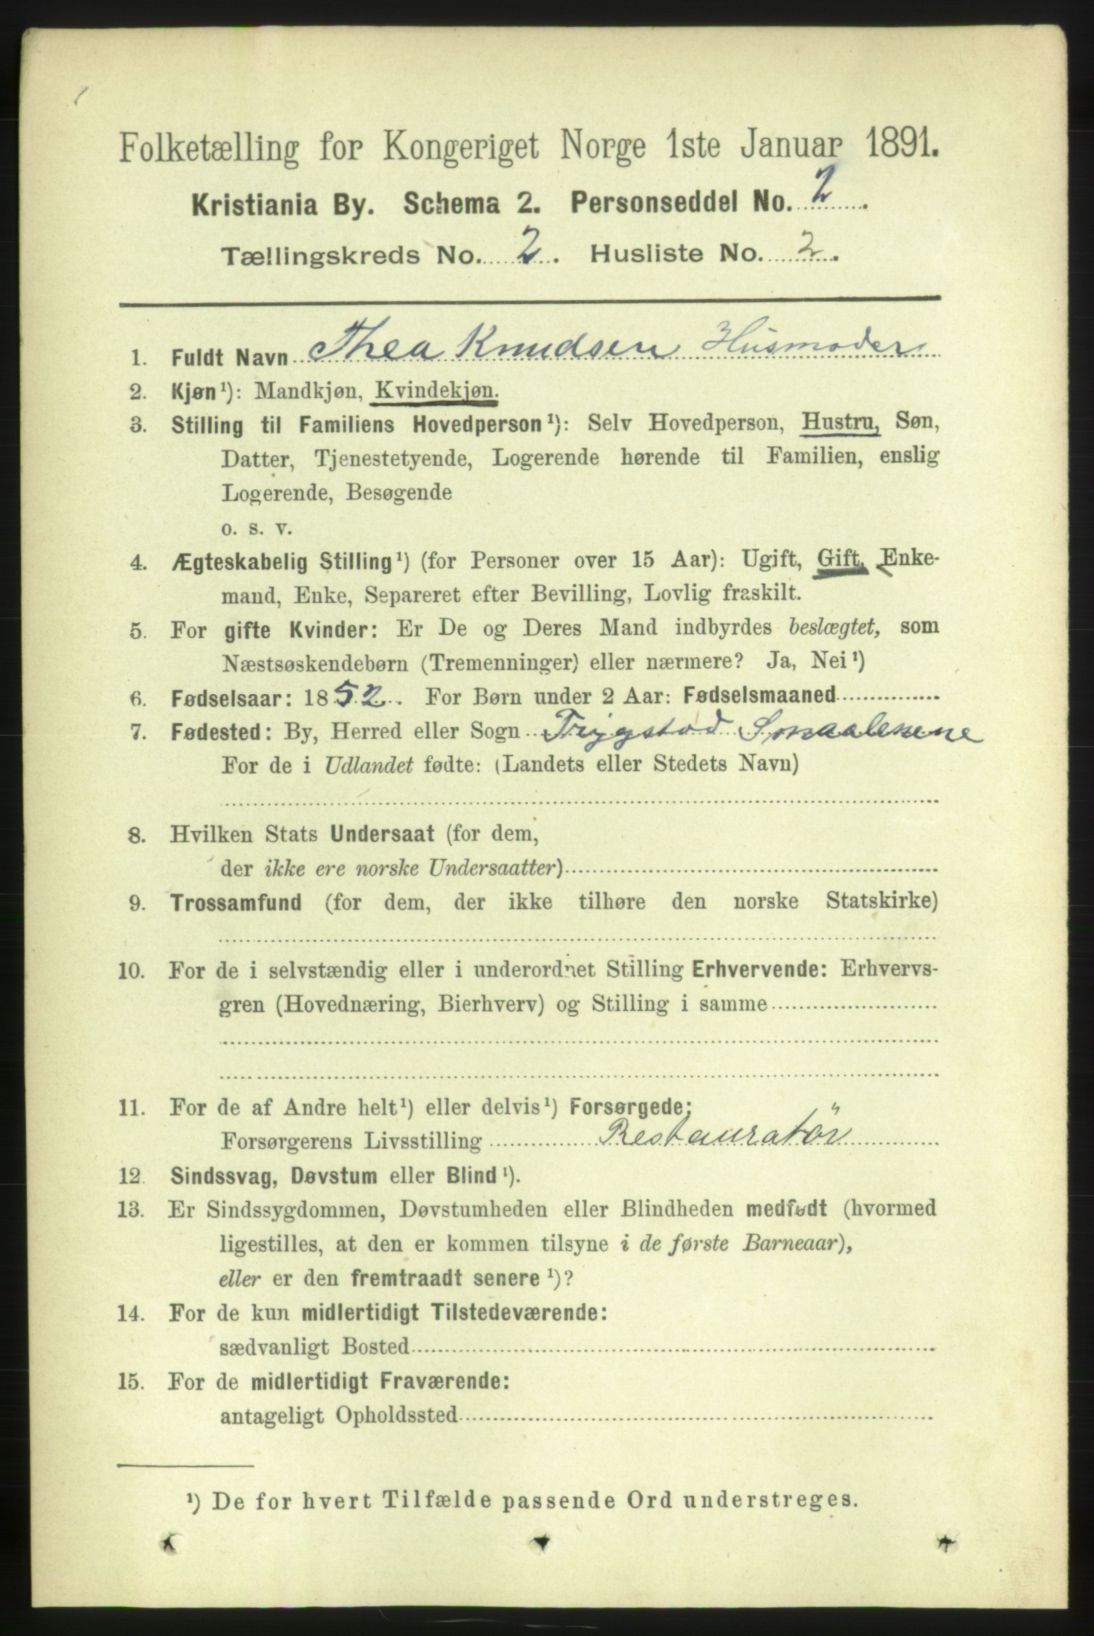 Folketælling for Kongeriget Norge 1ste Januar 1891.
Kristiania By. Schema 2. Personseddel No. 2.
Tællingskreds No. 2. Husliste No. 2.
1. Fuldt Navn Thea Knudsen Husmoder
2. Kjøn¹): Mandkjøn, Kvindekjøn.
3. Stilling til Familiens Hovedperson¹): Selv Hovedperson, Hustru, Søn,
Datter, Tjenestetyende, Logerende hørende til Familien, enslig
Logerende, Besøgende
o. s. v.
4. Ægteskabelig Stilling¹) (for Personer over 15 Aar): Ugift, Gift, Enke-
mand, Enke, Separeret efter Bevilling, Lovlig fraskilt.
5. For gifte Kvinder: Er De og Deres Mand indbyrdes beslægtet, som
Næstsøskendebørn (Tremenninger) eller nærmere? Ja, Nei¹)
6. Fødselsaar: 1852. For Børn under 2 Aar: Fødselsmaaned
7. Fødested: By, Herred eller Sogn Trygstad Smaalenene
For de i Udlandet fødte: (Landets eller Stedets Navn)
8. Hvilken Stats Undersaat (for dem,
der ikke ere norske Undersaatter)
9. Trossamfund (for dem, der ikke tilhøre den norske Statskirke)
10. For de i selvstændig eller i underordnet Stilling Erhvervende: Erhvervs-
gren (Hovednæring, Bierhverv) og Stilling i samme
11. For de af Andre helt¹) eller delvis¹) Forsørgede:
Forsørgerens Livsstilling Restauratör
12. Sindssvag, Døvstum eller Blind¹).
13. Er Sindssygdommen, Døvstumheden eller Blindheden medfødt (hvormed
ligestilles, at den er kommen tilsyne i de første Barneaar),
eller er den fremtraadt senere¹)?
14. For de kun midlertidigt Tilstedeværende:
sædvanligt Bosted
15. For de midlertidigt Fraværende:
antageligt Opholdssted
¹) De for hvert Tilfælde passende Ord understreges.